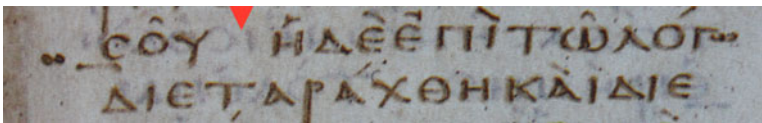 ϹΟ͂Υ ἭΔῈἜΠῚΤΩ͂ΛΌΓω
ΔΙΕΤΑΡΆΧΘΗΚΑῚΔΙΕ